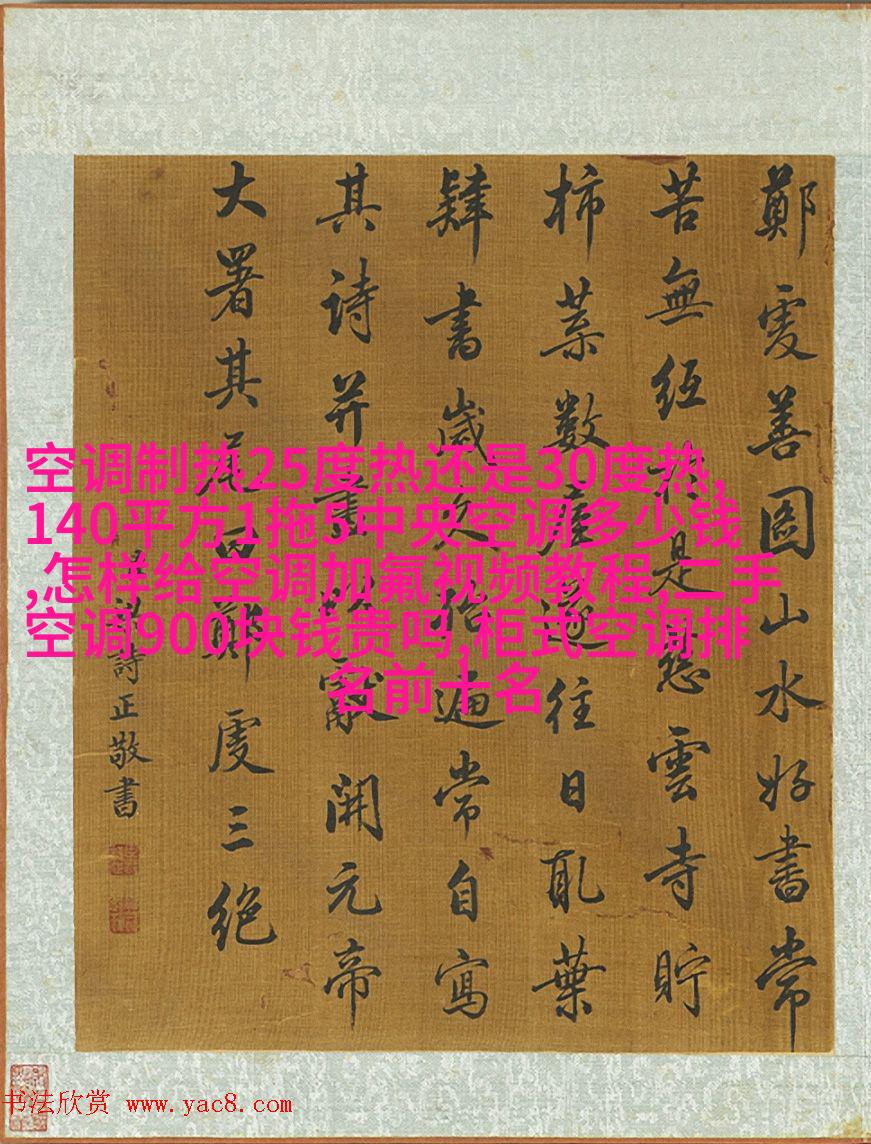 鄭虔善圖山水好書常
苦無紙於是慈雲寺貯
柿葉數屋遂往日取葉
肄書歲久殆遍常自寫
其詩并畫以獻開元帝
大署其尾曰鄭虔三絕
詩正敬書
空调制热25度热还是30度热,
140平方1拖5中央空调多少钱
,怎样给空调加氟视频教程,二手
空调900块钱贵吗,柜式空调排
名前十名
书法欣赏 www.yac8.com